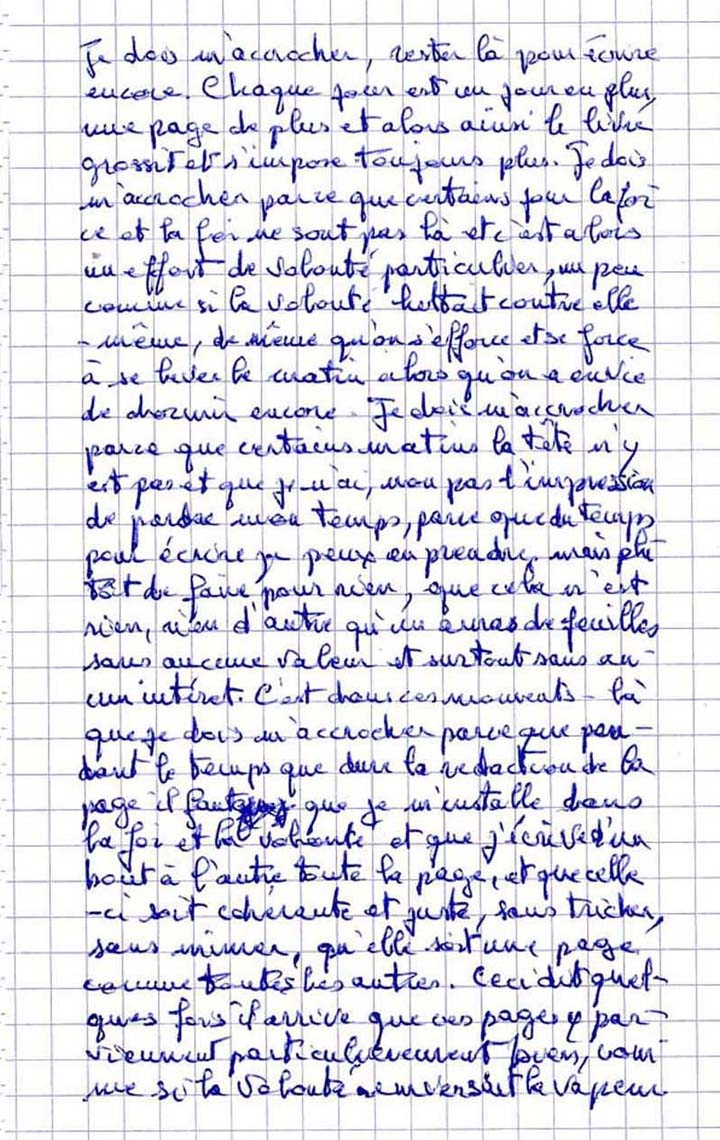 Je dois m'accrocher, rester là pour écrire
encore. Chaque jour est un jour en plus,
une page de plus et alors ainsi le livre
grossit et s'impose toujours plus. Je dois
m'accrocher parce que certains jour la for
ce et la foi ne sont pas là et c'est alors
un effort de volonté particulier, un peu
comme si la volonté luttait contre elle
-même, de même qu'on s'efforce et se force
à se lever le matin alors qu'on a envie
de dormir encore. Je dois m'accrocher
parce que certains matins la tête n'y
est pas et que je n'ai, non pas l'impression
de perdre mon temps, parce que du temps
pour écrire je peux en prendre, mais plu
tôt de faire pour rien, que cela n'est
rien, rien d'autre qu'un amas de feuilles
sans aucune valeur et surtout sans au-
cun intéret. C'est dans ces moments-là
que je dois m'accrocher parce que pen-
dant le temps que dure la rédaction de la
page il faut que je m'installe dans
la foi et la volonté et que j'écrive d'un
bout à l'autre toute la page, et que celle
-ci soit cohérente et juste, sans tricher,
sans mimer, qu'elle soit une page
comme toutes les autres. Ceci dit quel-
ques fois il arrive que ces pages y par-
viennent particulièrement bien, com
me si la volonté renversait la vapeur